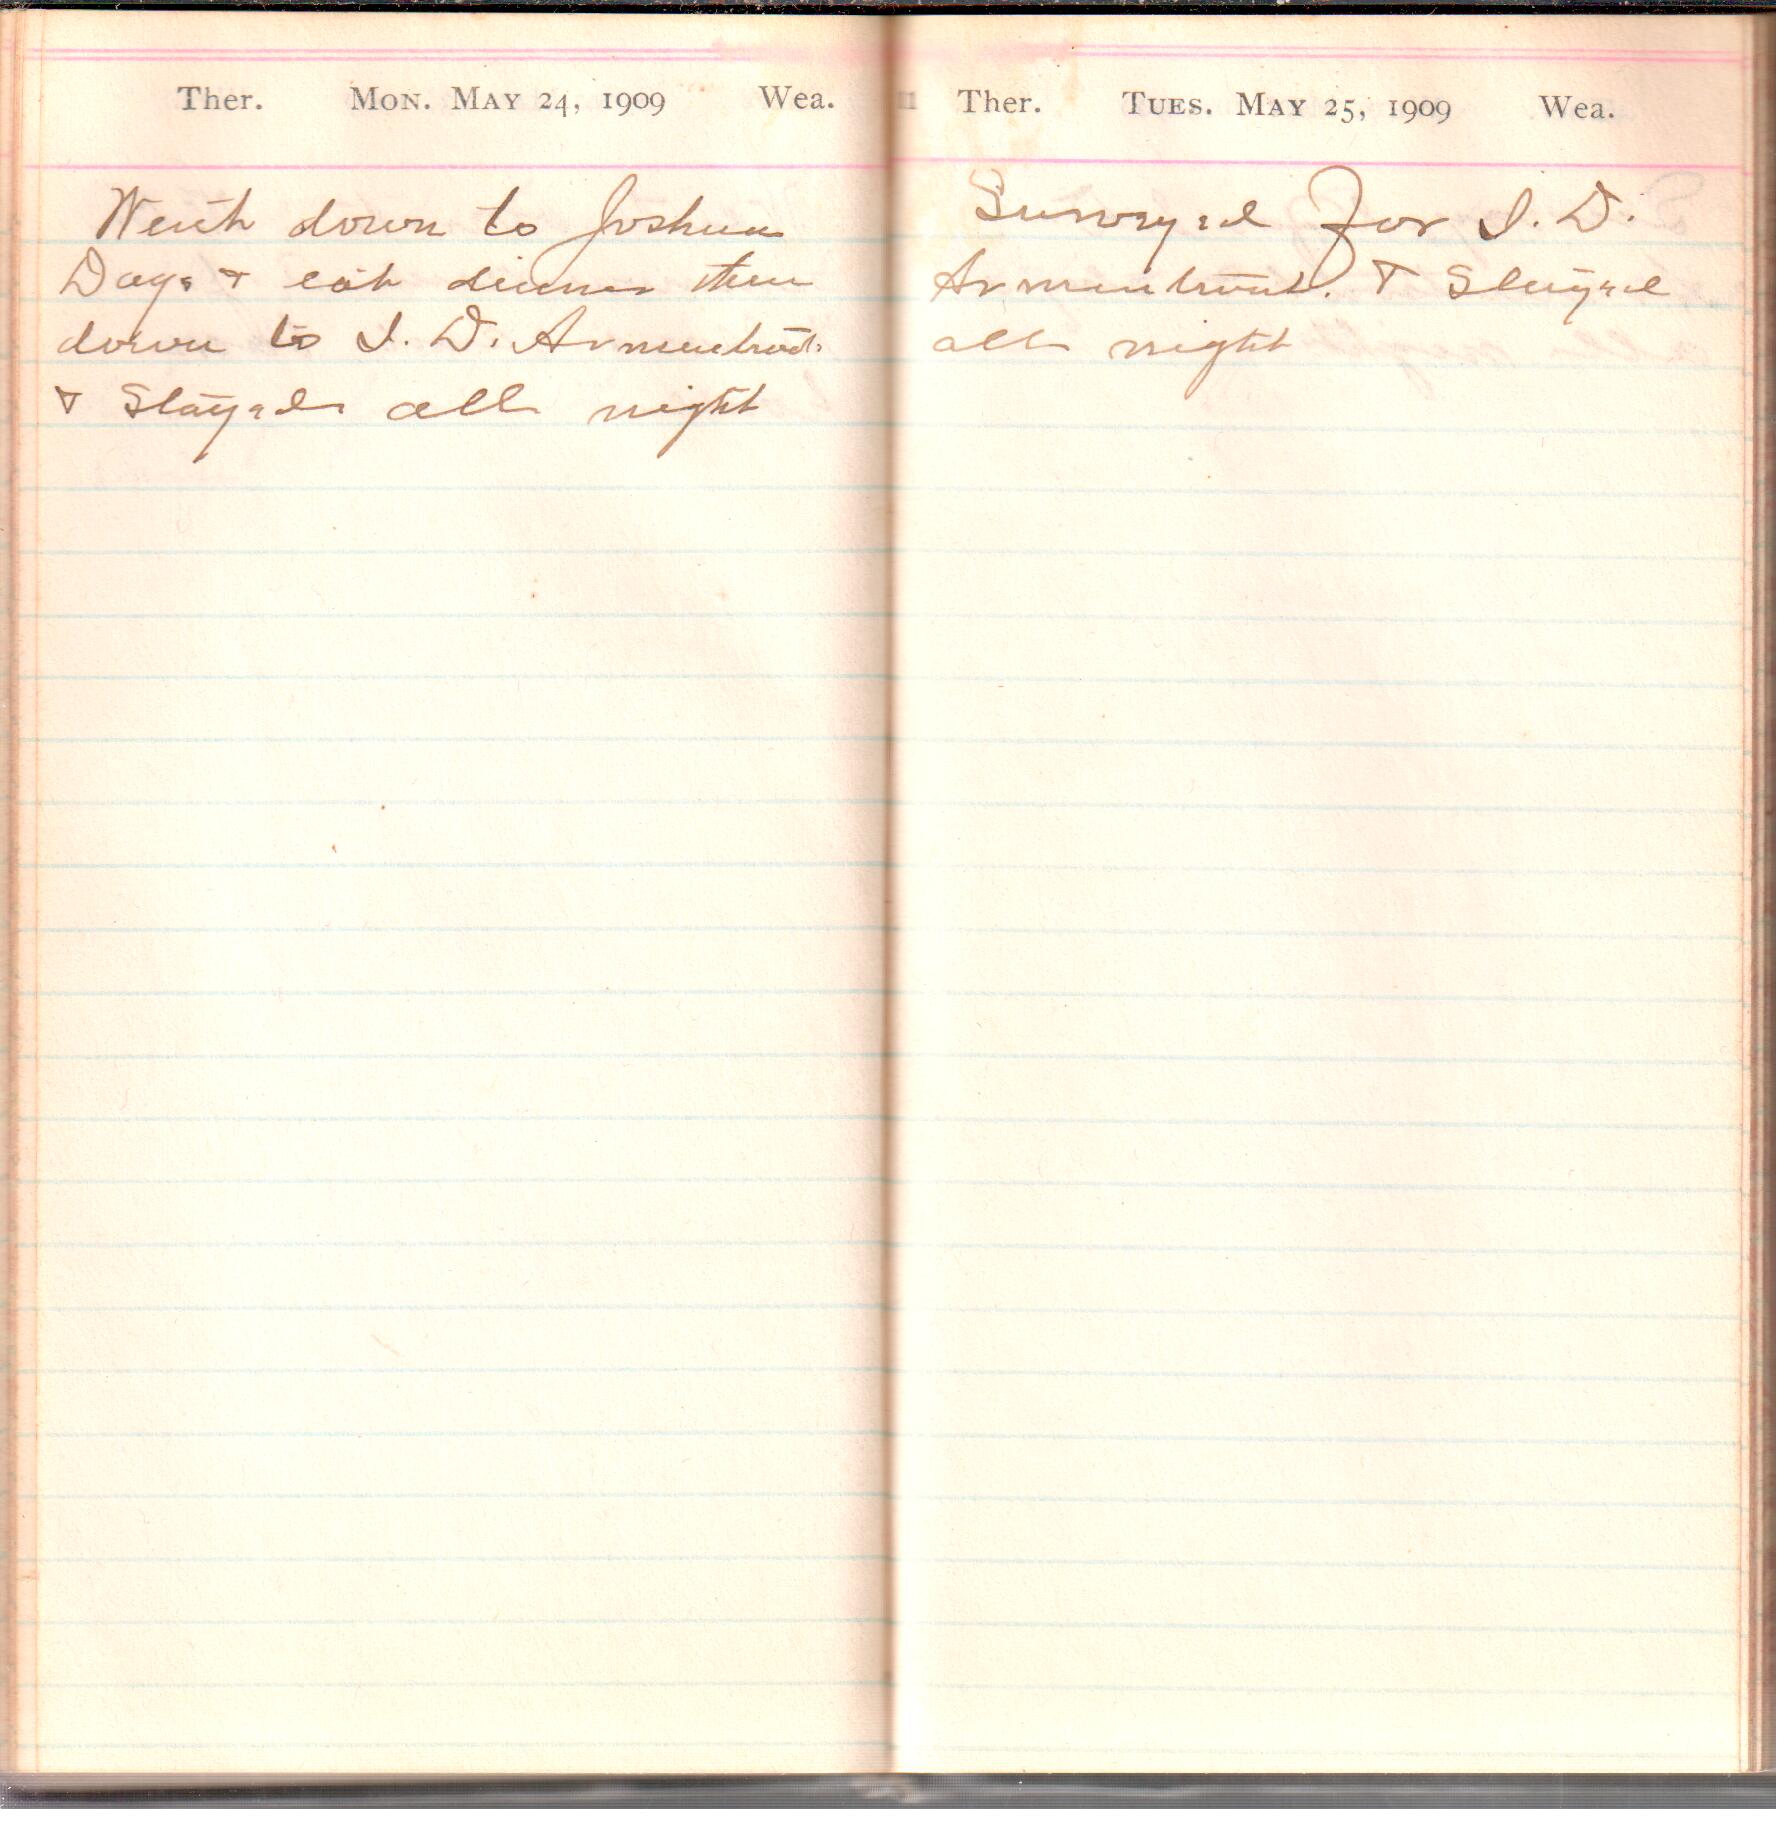 Ther. Mon. May 24, 1909 Wea.
Went down to Joshua
Days & eat dinner then
down to I. D. Armentrout
& Stayed all night
Ther. Tues. May 25, 1909 Wea.
Surveyed For I. D.
Armentrout. & Stayed
all night